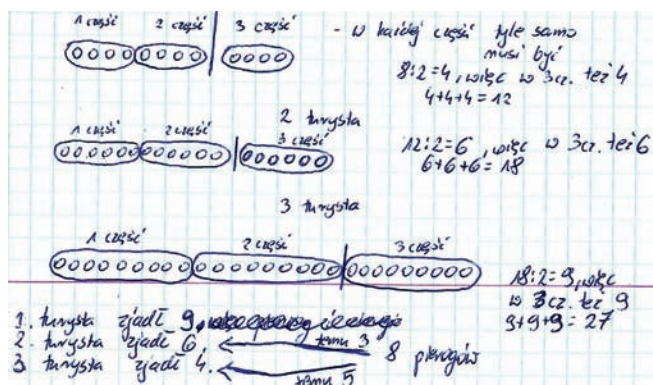 1 część 2 część 3 część - w każdej części tyle samo
musi być
8:2=4, więc w 3cz. też 4
4+4+4=12
2 turysta
1 część 2 część 3 część
12:2=6, więc w 3cz. też 6
6+6+6=18
3 turysta
1 część 2 część 3 część
18:2=9, więc
w 3cz. też 9
9+9+9=27
1. turysta zjadł 9,
2. turysta zjadł 6. temu 3 8 pierogów
3 turysta zjadł 4. temu 5